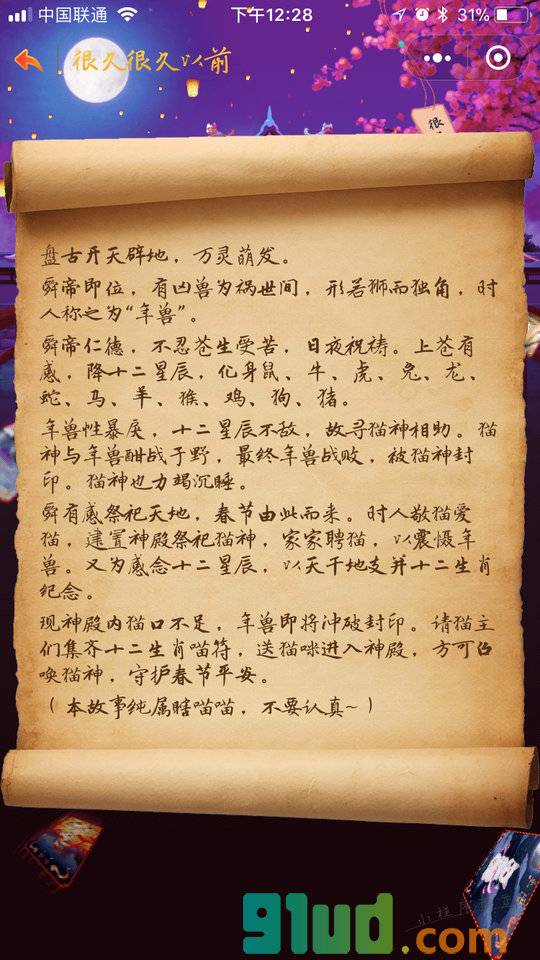 中国联通
下午12:28
31%
很久很久以前
很
盘古开天辟地，万灵萌发。
舜帝即位，有凶兽为祸世间，形若狮而独角，时
人称之为“年兽”。
舜帝仁德，不忍苍生受苦，日夜祝祷。上苍有
感，降十二星辰，化身鼠、牛、虎、兔、龙、
蛇、马、羊、猴、鸡、狗、猪。
年兽性暴戾，十二星辰不敌，故寻猫神相助。猫
神与年兽酣战于野，最终年兽战败，被猫神封
印。猫神也力竭沉睡。
舜有感祭祀天地，春节由此而来。时人敬猫爱
猫，建置神殿祭祀猫神，家家聘猫，以震慑年
兽。又为感念十二星辰，以天干地支并十二生肖
纪念。
现神殿内猫口不足，年兽即将冲破封印。请猫主
们集齐十二生肖喵符，送猫咪进入神殿，方可召
唤猫神，守护春节平安。
（本故事纯属瞎喵喵，不要认真~）
小程序
91ud.com